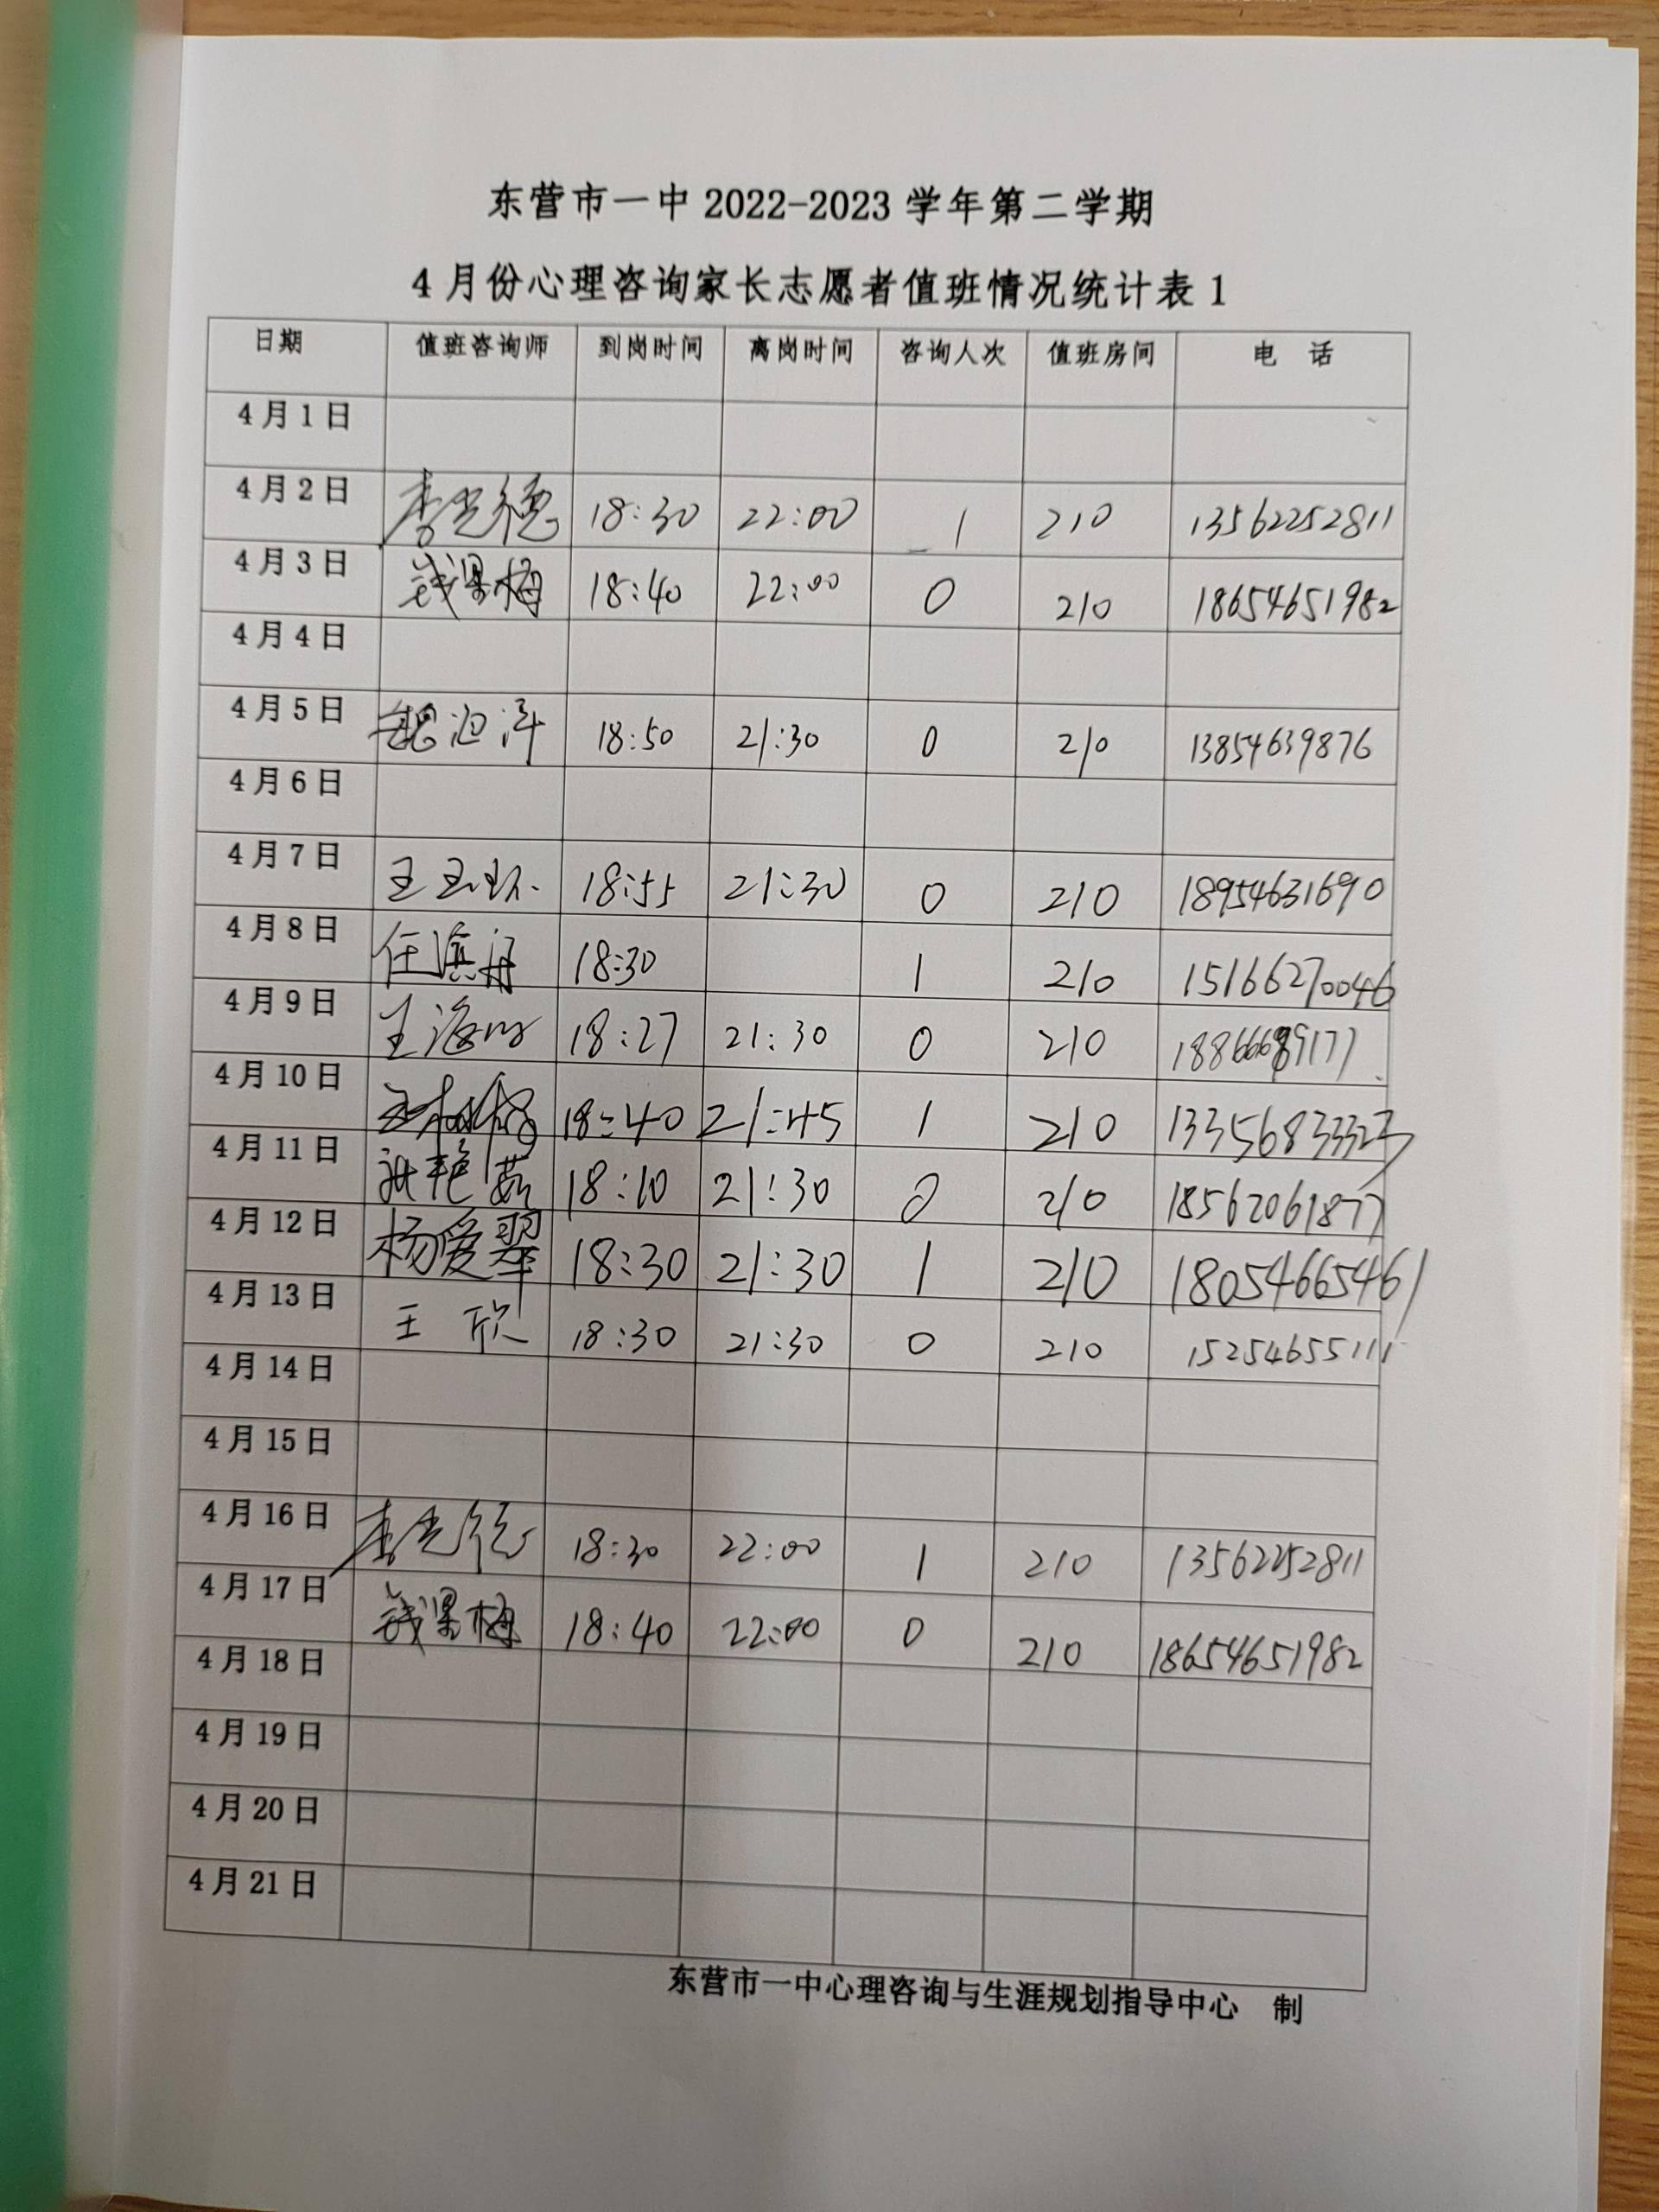 东营市一中 2022-2023 学年第二学期
4 月份心理咨询家长志愿者值班情况统计表 1
日期 值班咨询师 到岗时间 离岗时间 咨询人次 值班房间 电 话
4 月 1 日
4 月 2 日 李光德 18:30 22:00 1 210 13562252811
4 月 3 日 钱果梅 18:40 22:00 0 210 18654651982
4 月 4 日
4 月 5 日 18:50 21:30 0 210 13854639876
4 月 6 日
4 月 7 日 18:55 21:30 0 210 18954631690
4 月 8 日 18:30 1 210 15166270046
4 月 9 日 18:27 21:30 0 210
4 月 10 日 18:40 21:45 1 210
4 月 11 日 18:10 21:30 0 210 18562061877
4 月 12 日 杨爱翠 18:30 21:30 1 210 18054665461
4 月 13 日 王 欣 18:30 21:30 0 210 15254655111
4 月 14 日
4 月 15 日
4 月 16 日 李光德 18:30 22:00 1 210 13562252811
4 月 17 日 钱果梅 18:40 22:00 0 210 18654651982
4 月 18 日
4 月 19 日
4 月 20 日
4 月 21 日
东营市一中心理咨询与生涯规划指导中心 制